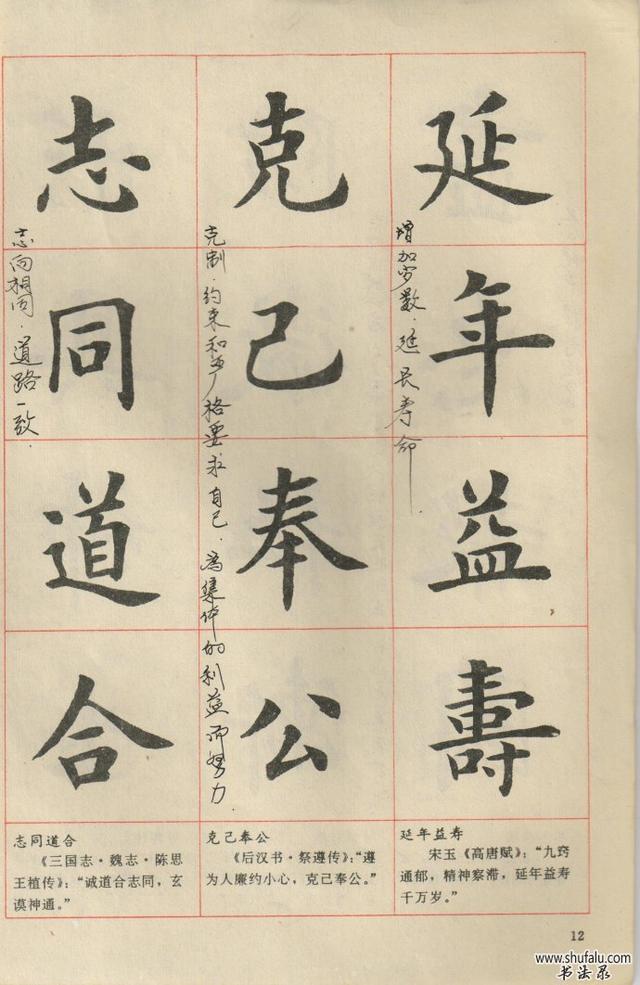 延年益壽
增加岁数．延长寿命
克己奉公
克制．约束和严格要求自己．为集体的利益而努力
志同道合
志向相同．道路一致．
延年益寿
宋玉《高唐赋》：“九窍
通郁，精神察滞，延年益寿
千万岁。”
克己奉公
《后汉书·祭遵传》：“遵
为人廉约小心，克己奉公。”
志同道合
《三国志·魏志·陈思
王植传》：“诚道合志同，玄
谟神通。”
12
www.shufalu.com
书法录